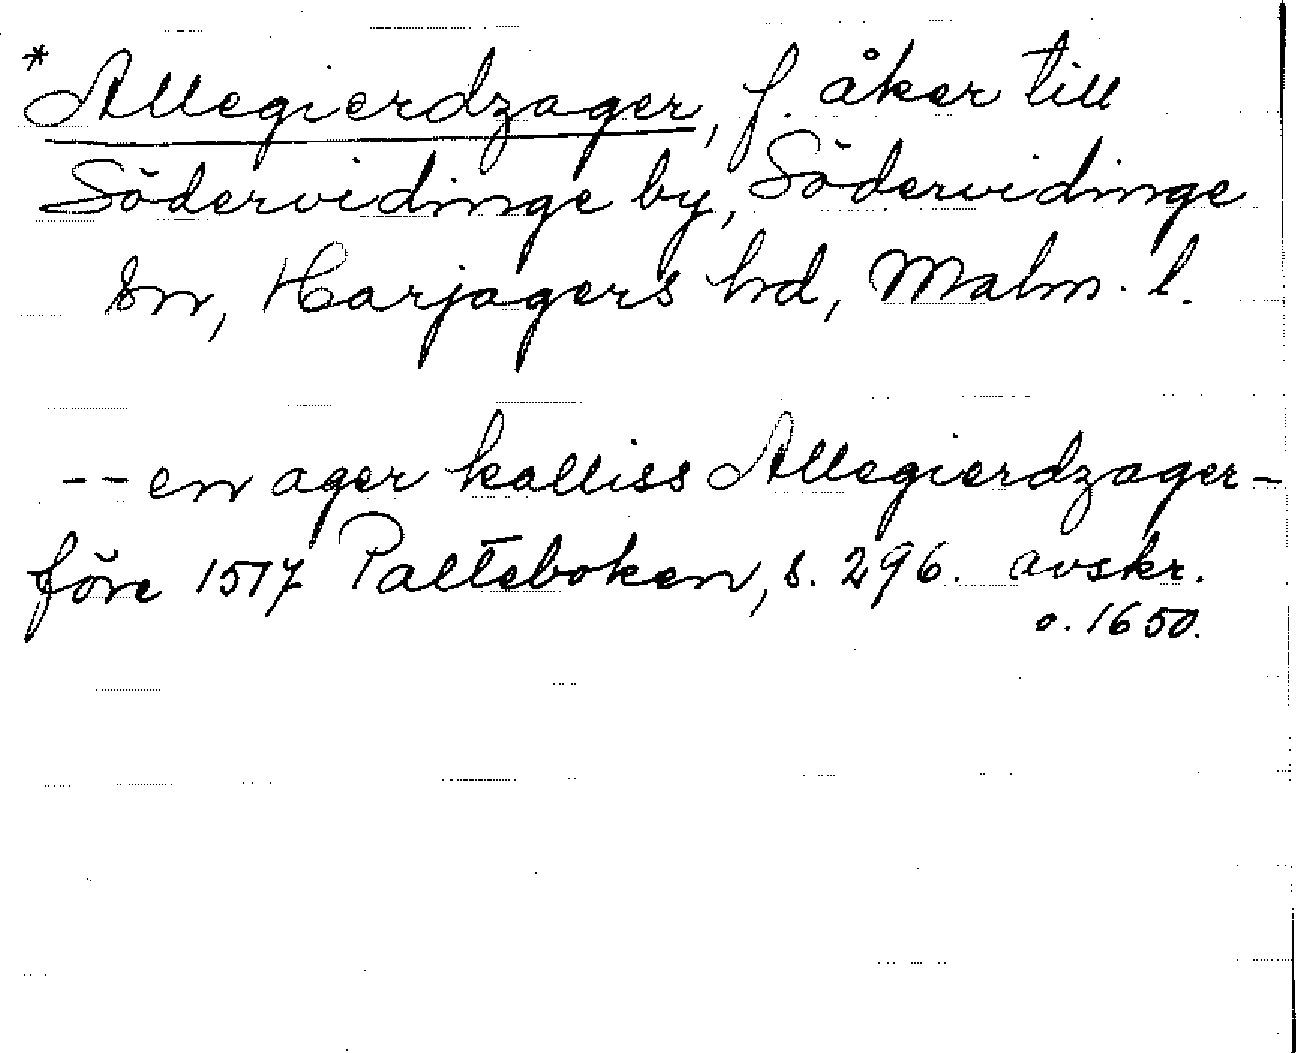 *Allegierdzager, f. åker till
Södervidinge by, Södervidinge
sn, Harjagers hd, Malm. l.
-- en ager kalliss Allegierdzager -
före 1517 Palteboken, s. 296. avskr.
o. 1650.